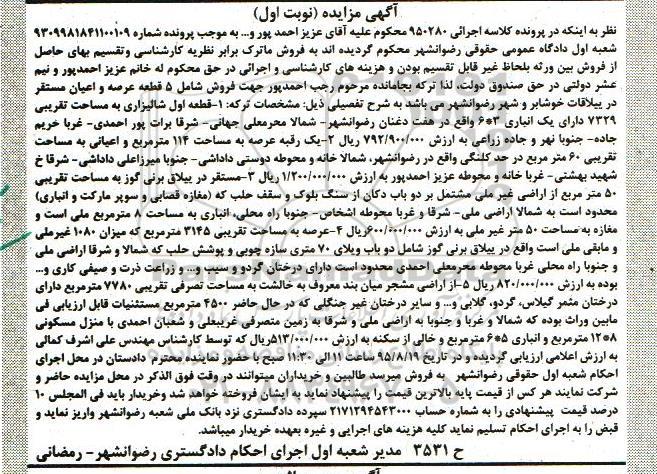 آگهی مزایده (نوبت اول)
نظر به اینکه در پرونده کلاسه اجرائی ۹۵۰۲۸۰ محکوم علیه آقای عزیز احمد پور و... به موجب پرونده شماره ۹۳۰۹۹۸۱۸۴۱۱۰۰۱۰۹
شعبه اول دادگاه عمومی حقوقی رضوانشهر محکوم گردیده اند به فروش ماترک برابر نظریه کارشناسی وتقسیم بهای حاصل
از فروش بین ورثه بلحاظ غیر قابل تقسیم بودن و هزینه های کارشناسی و اجرائی در حق محکوم له خانم عزیز احمدپور و نیم
عشر دولتی در حق صندوق دولت، لذا ترکه بجامانده مرحوم رجب احمدپور جهت فروش شامل ۵ قطعه عرصه و اعیان مستقر
در ییلاقات خوشابر و شهر رضوانشهر می باشد به شرح تفصیلی ذیل: مشخصات ترکه: ۱-قطعه اول شالیزاری به مساحت تقریبی
۷۳۲۹ دارای یک انباری ۳*۶ واقع در هفت دغنان رضوانشهر- شمالا محرمعلی جهانی- شرقا برات پور احمدی- غربا خریم
جاده- جنوبا نهر و جاده زراعی به ارزش ۷۹۲/۹۰۰/۰۰۰ ریال ۲-یک رقبه عرصه به مساحت ۱۱۴ مترمربع و اعیانی به مساحت
تقریبی ۶۰ متر مربع در حد کلنگی واقع در رضوانشهر، شمالا خانه و محوطه دوستی داداشی- جنوبا میرزاعلی داداشی- شرقا خ
شهید بهشتی- غربا خانه و محوطه عزیز احمدپور به ارزش ۱/۲۰۰/۰۰۰/۰۰۰ ریال ۳-مستقر در ییلاق برنی گوز به مساحت تقریبی
۵۰ متر مربع از اراضی غیر ملی مشتمل بر دو باب دکان از سنگ بلوک و سقف حلب که (مغازه قصابی و سوپر مارکت و انباری)
محدود است به شمالا اراضی ملی- شرقا و غربا محوطه اشخاص- جنوبا راه محلی، انباری به مساحت ۸ مترمربع ملی است و
مغازه به مساحت ۵۰ متر غیر ملی به ارزش ۶۰۰/۰۰۰/۰۰۰ریال ۴-عرصه به مساحت تقریبی ۳۱۴۵ مترمربع که میزان ۱۰۸۰ غیرملی
و مابقی ملی است واقع در ییلاق برنی گوز شامل دو باب ویلای ۷۰ متری سازه چوبی و پوشش حلب که شمالا و شرقا اراضی ملی
و جنوبا راه محلی غربا محوطه محرمعلی احمدی محدود است دارای درختان گردو و سیب و... و زراعت ذرت و صیفی کاری و...
بوده به ارزش ۸۲۰/۰۰۰/۰۰۰ ریال ۵-از اراضی مشجر میان بند معروف به خالشت به مساحت تصرفی تقریبی ۷۷۸۰ مترمربع دارای
درختان مثمر گیلاس، گردو، گلابی و... و سایر درختان غیر جنگلی که در حال حاضر ۴۵۰۰ مترمربع مستثنیات قابل ارزیابی فی
مابین وراث بوده که شمالا و غربا و جنوبا به اراضی ملی و شرقا به زمین متصرفی غریبعلی و شعبان احمدی با منزل مسکونی
۸*۱۲ مترمربع و انباری ۵*۶ مترمربع و خالی از سکنه به ارزش ۵۱۳/۰۰۰/۰۰۰ریال که توسط کارشناس مهندس علی اشرف کمالی
به ارزش اعلامی ارزیابی گردیده و در تاریخ ۹۵/۸/۱۹ ساعت ۱۱ الی ۱۱:۳۰ صبح با حضور نماینده محترم دادستان در محل اجرای
احکام شعبه اول حقوقی رضوانشهر به فروش میرسد طالبین و خریداران میتوانند در وقت فوق الذکر در محل مزایده حاضر و
شرکت نمایند هر کس از قیمت پایه بالاترین قیمت را پیشنهاد نماید به ایشان فروخته خواهد شد وخریدار باید فی المجلس ۱۰
درصد قیمت پیشنهادی را به شماره حساب ۲۱۷۱۲۹۴۵۴۳۰۰۰ سپرده دادگستری نزد بانک ملی شعبه رضوانشهر واریز نماید و
قبض را به اجرای احکام تسلیم نماید کلیه هزینه های اجرایی و غیره بعهده خریدار میباشد.
ح ۳۵۳۱ مدیر شعبه اول اجرای احکام دادگستری رضوانشهر- رمضانی